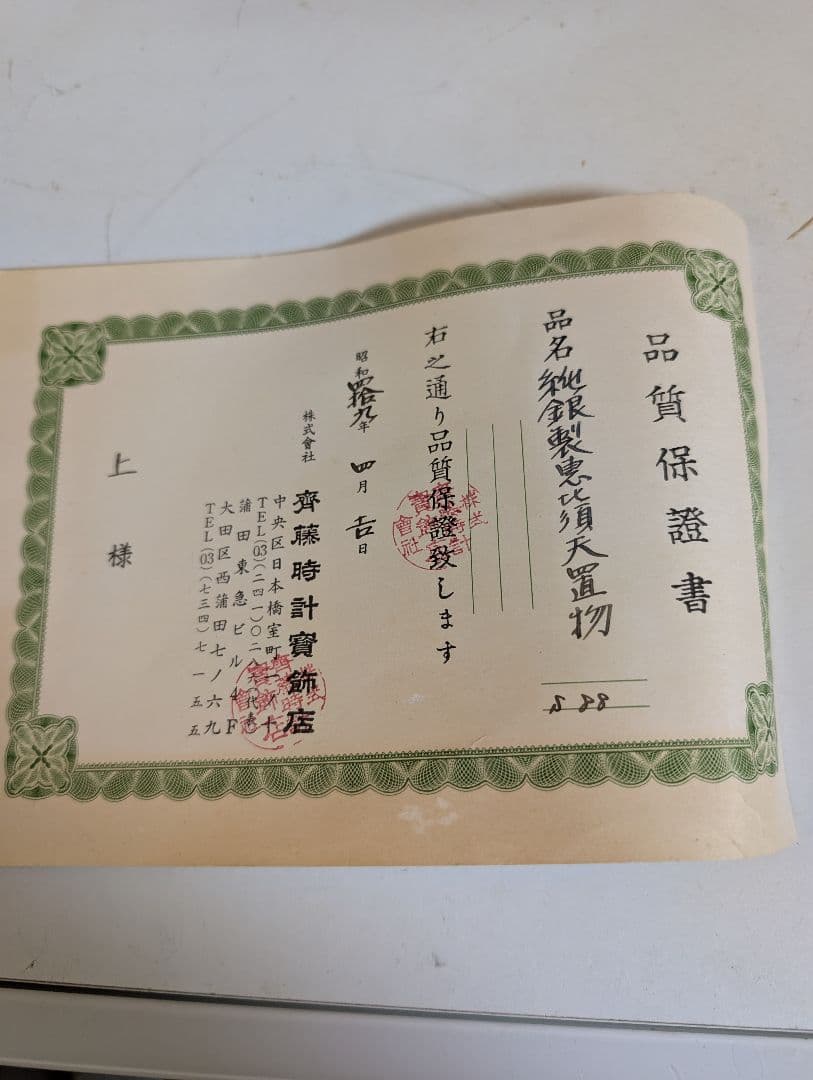 品質保證書
品名 純銀製恵比須天置物
右之通り品質保證致します
昭和四拾九年 四月 吉日
株式會社 齊藤時計寳飾店
中央区日本橋室町一ノ十
TEL(03)(二四一)〇二八六(代表)
蒲田東急ビル4F
大田区西蒲田七ノ六九
TEL(03)(七三四)七一五五
上様